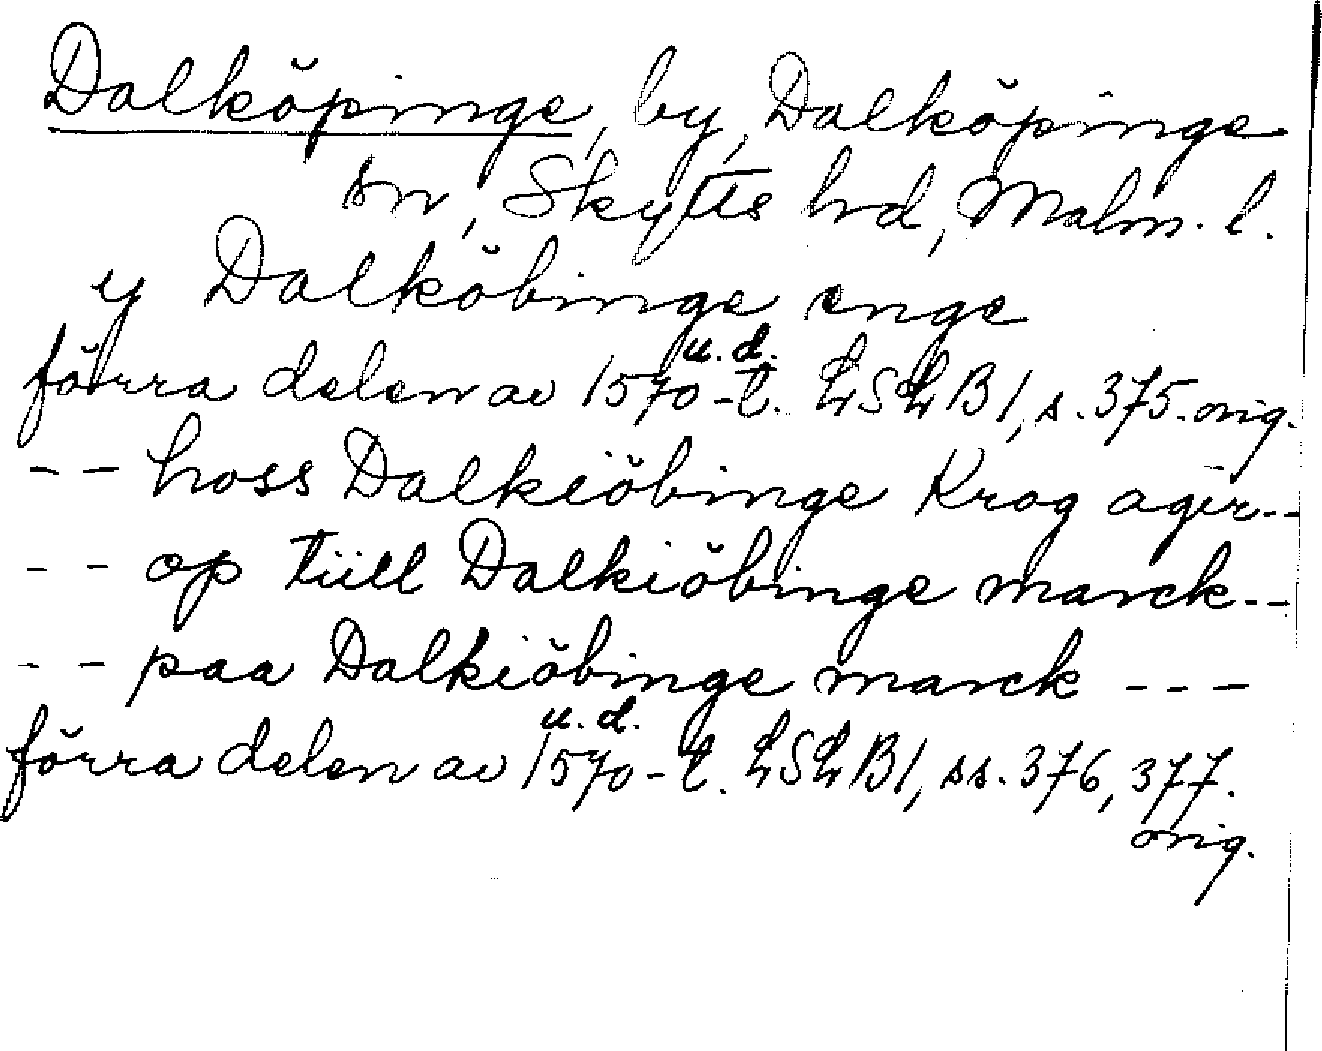 Dalköpinge, by, Dalköpinge
sn, Skytts hd, Malm. l.
y Dalköbinge enge
u. d.
förra delen av 1570-t. LSLB1, s. 375. orig.
-- hoss Dalkiöbinge Krog ager--
-- op tiill Dalkiöbinge marck--
-- paa Dalkiöbinge marck ---
u. d.
förra delen av 1570-t. LSLB1, ss. 376, 377.
orig.